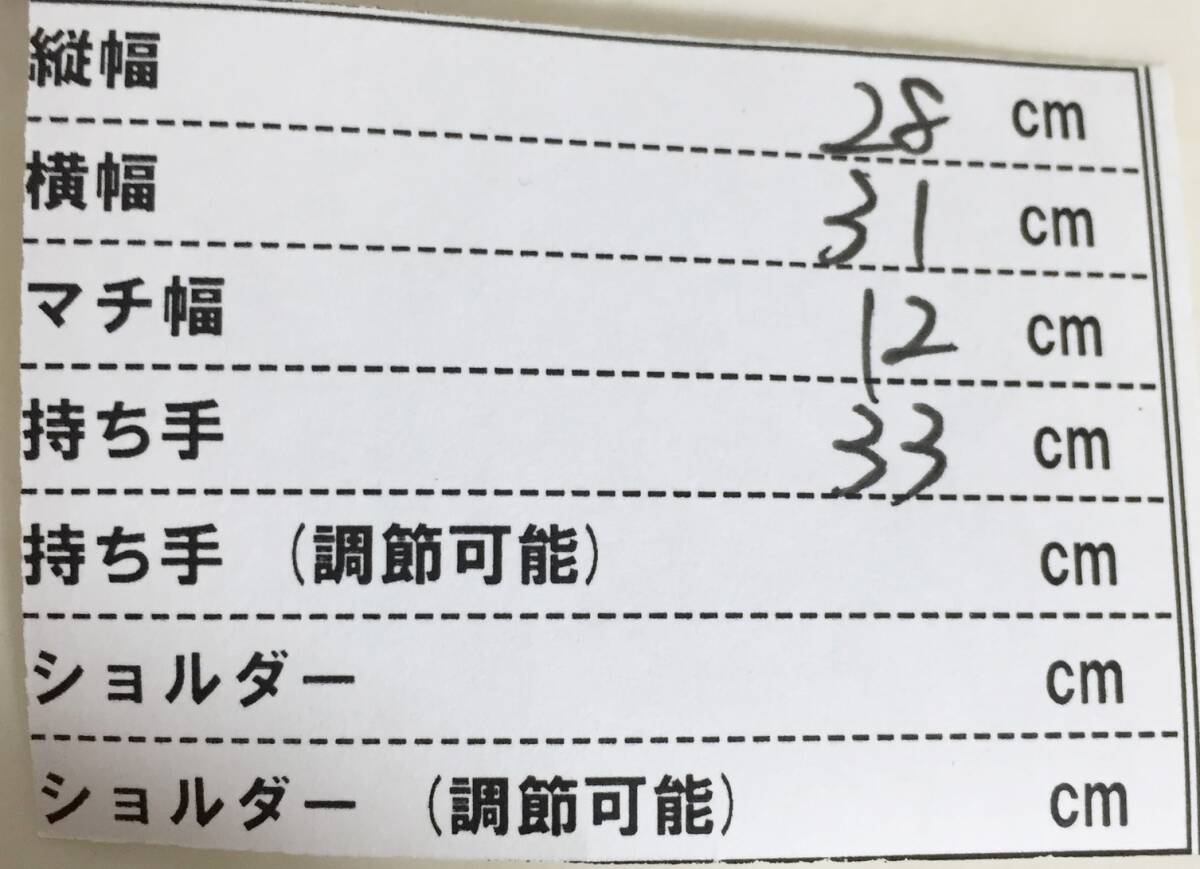 縦幅 28 cm
横幅 31 cm
マチ幅 12 cm
持ち手 33 cm
持ち手 (調節可能) cm
ショルダー cm
ショルダー (調節可能) cm